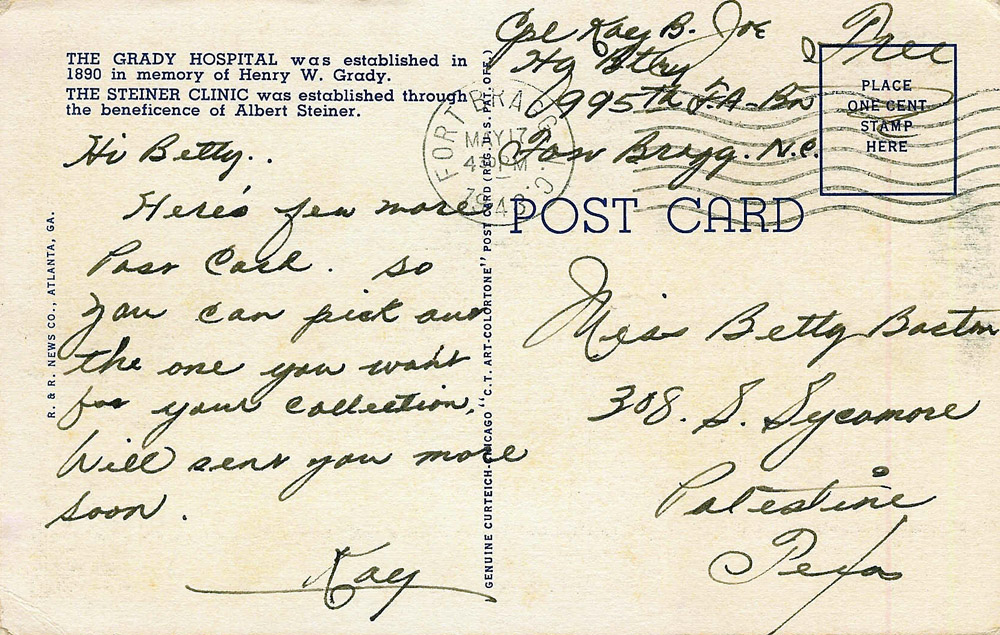 THE GRADY HOSPITAL was established in
1890 in memory of Henry W. Grady.
THE STEINER CLINIC was established through
the beneficence of Albert Steiner.
Hi Betty..
Here's few more
Post Card. so
you can pick out
the one you want
for your collection.
Will sent you more
soon.
Kay
R. & R. NEWS CO., ATLANTA, GA.
GENUINE CURTEICH-CHICAGO "C.T. ART-COLORTONE" POST CARD (REG. U.S. PAT. OFF.)
Cpl Kay B. Joe
Hq Btry
995th F.A. Bn
Fort Bragg. N.C.
Free
FORT BRAGG N.C.
MAY 17
430 PM
1943
PLACE
ONE CENT
STAMP
HERE
POST CARD
Miss Betty Baston
308. S. Sycamore
Palestine
Texas